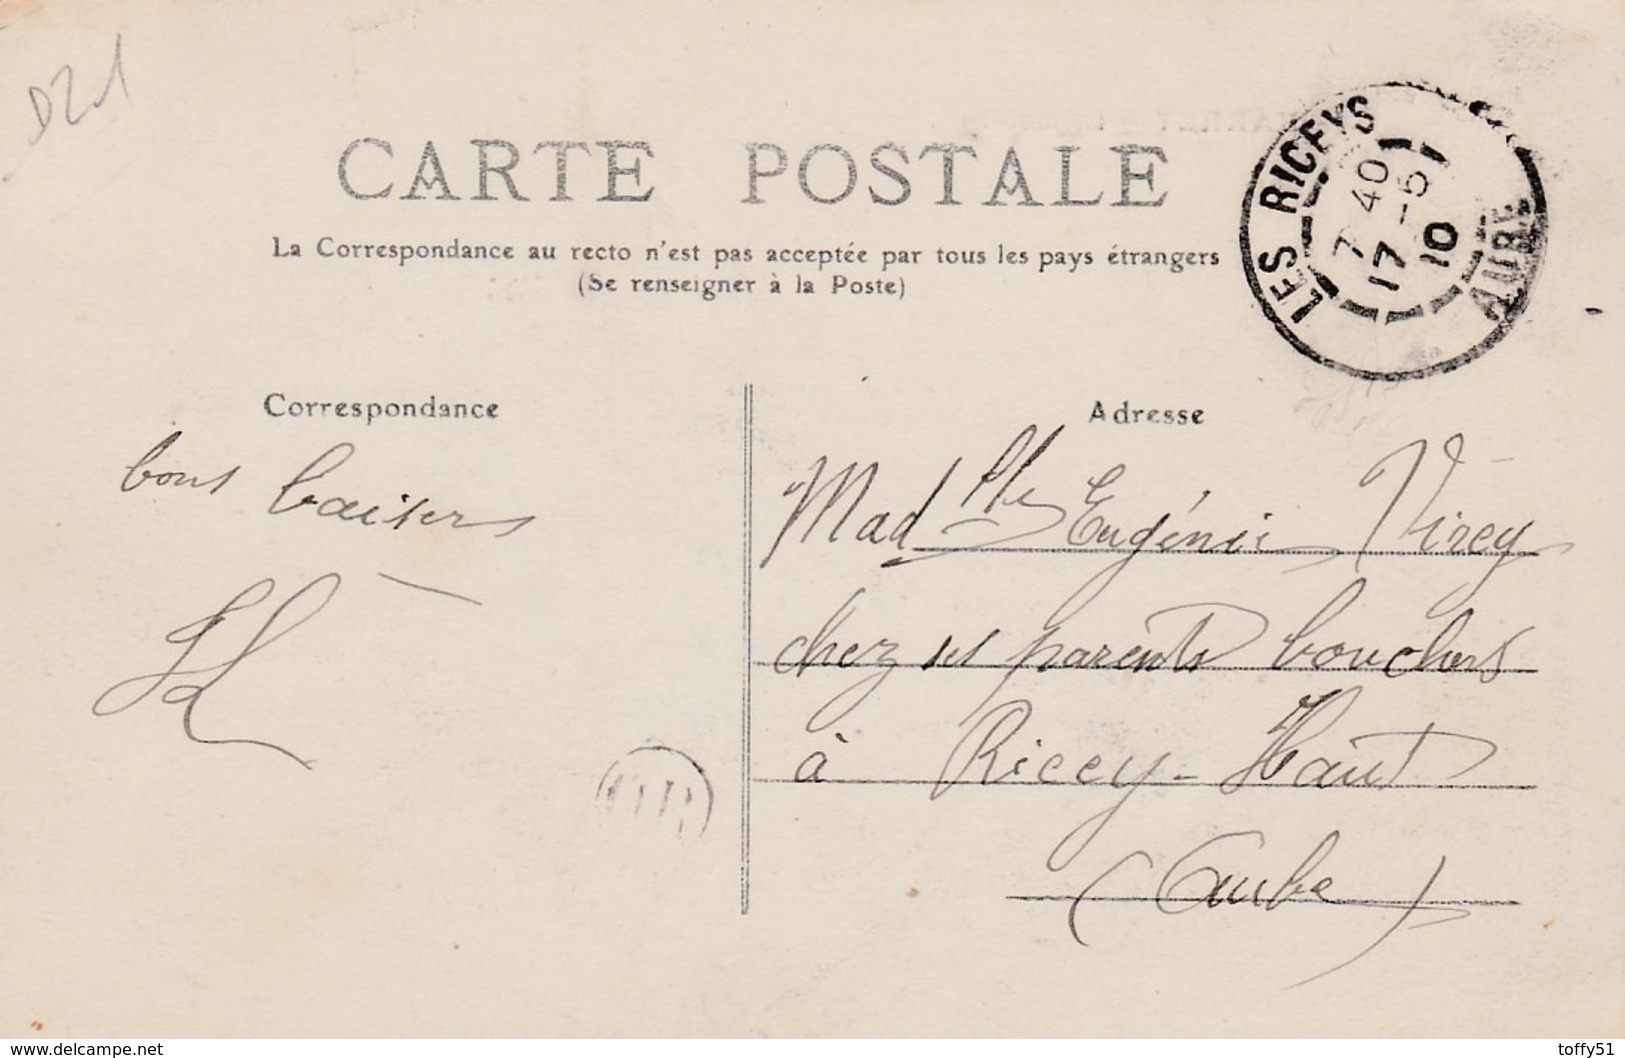 D21
CARTE POSTALE
La Correspondance au recto n'est pas acceptée par tous les pays étrangers
(Se renseigner à la Poste)
LES RICEYS
7 40
17 -5
10
AUBE
Correspondance
bons baisers
Adresse
Madlle Eugénie Virey
chez ses parents bouchers
à Ricey-Haut
(Aube)
www.delcampe.net
toffy51